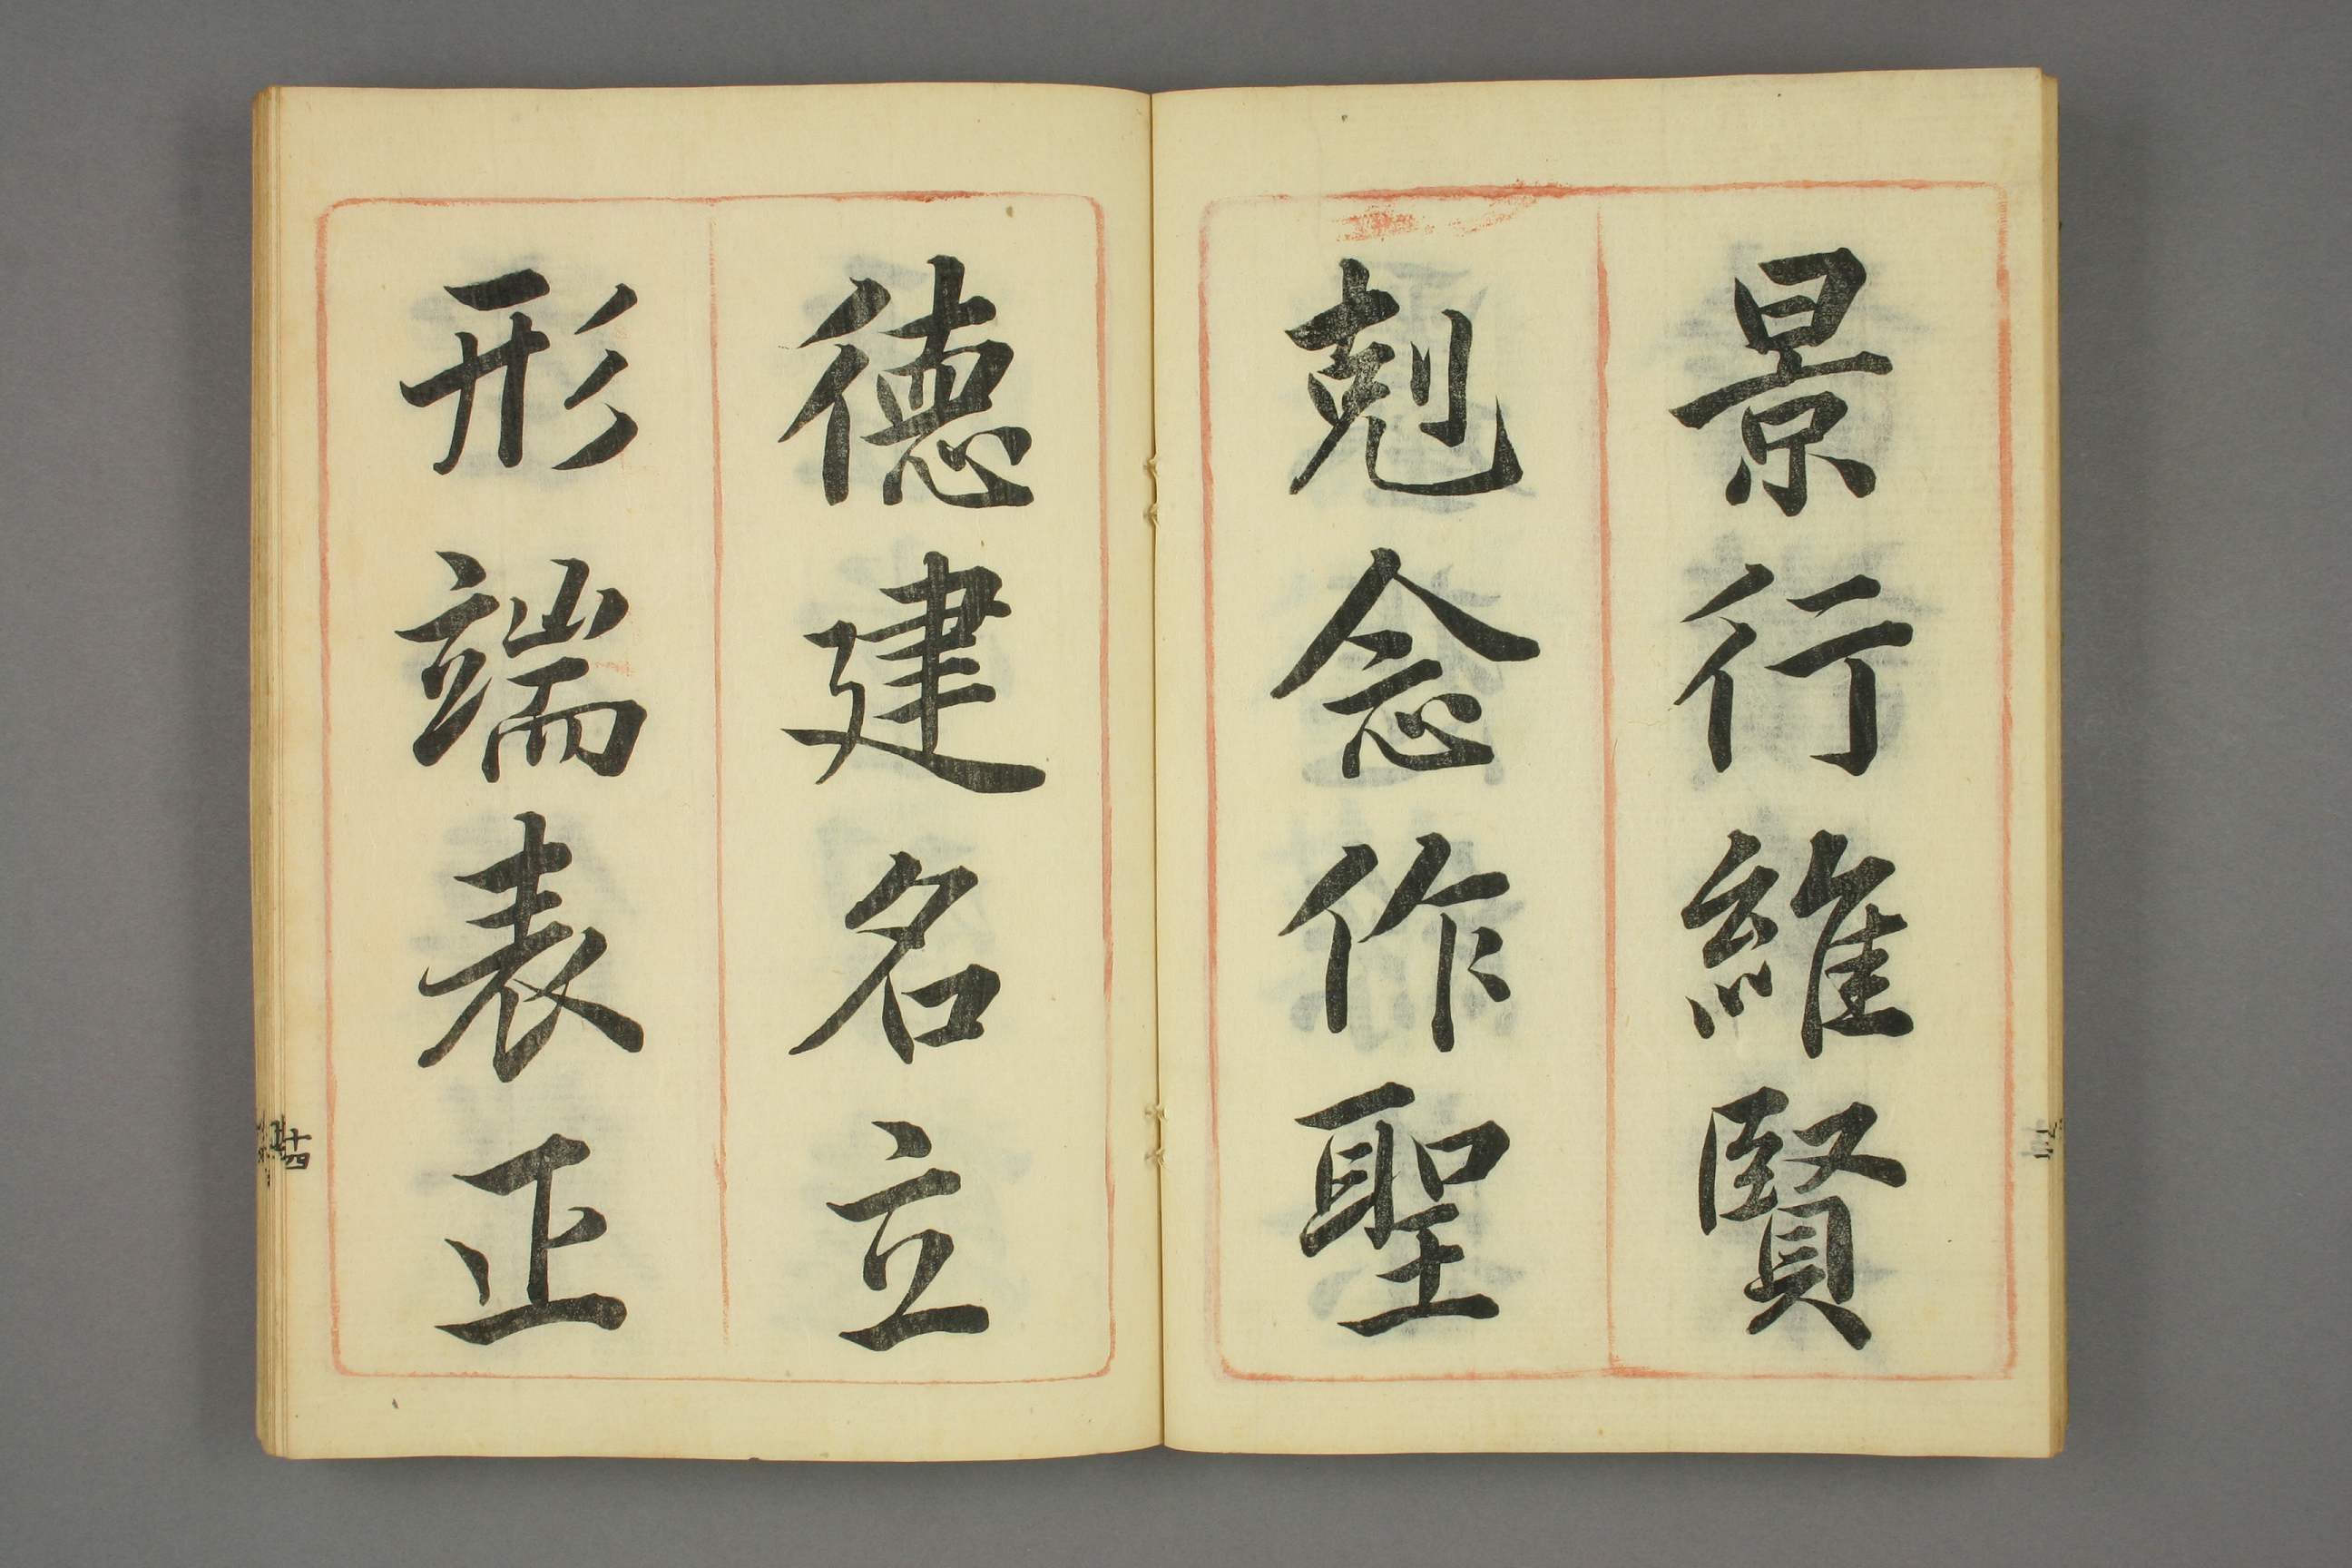 景行維賢
剋念作聖
德建名立
形端表正
十四